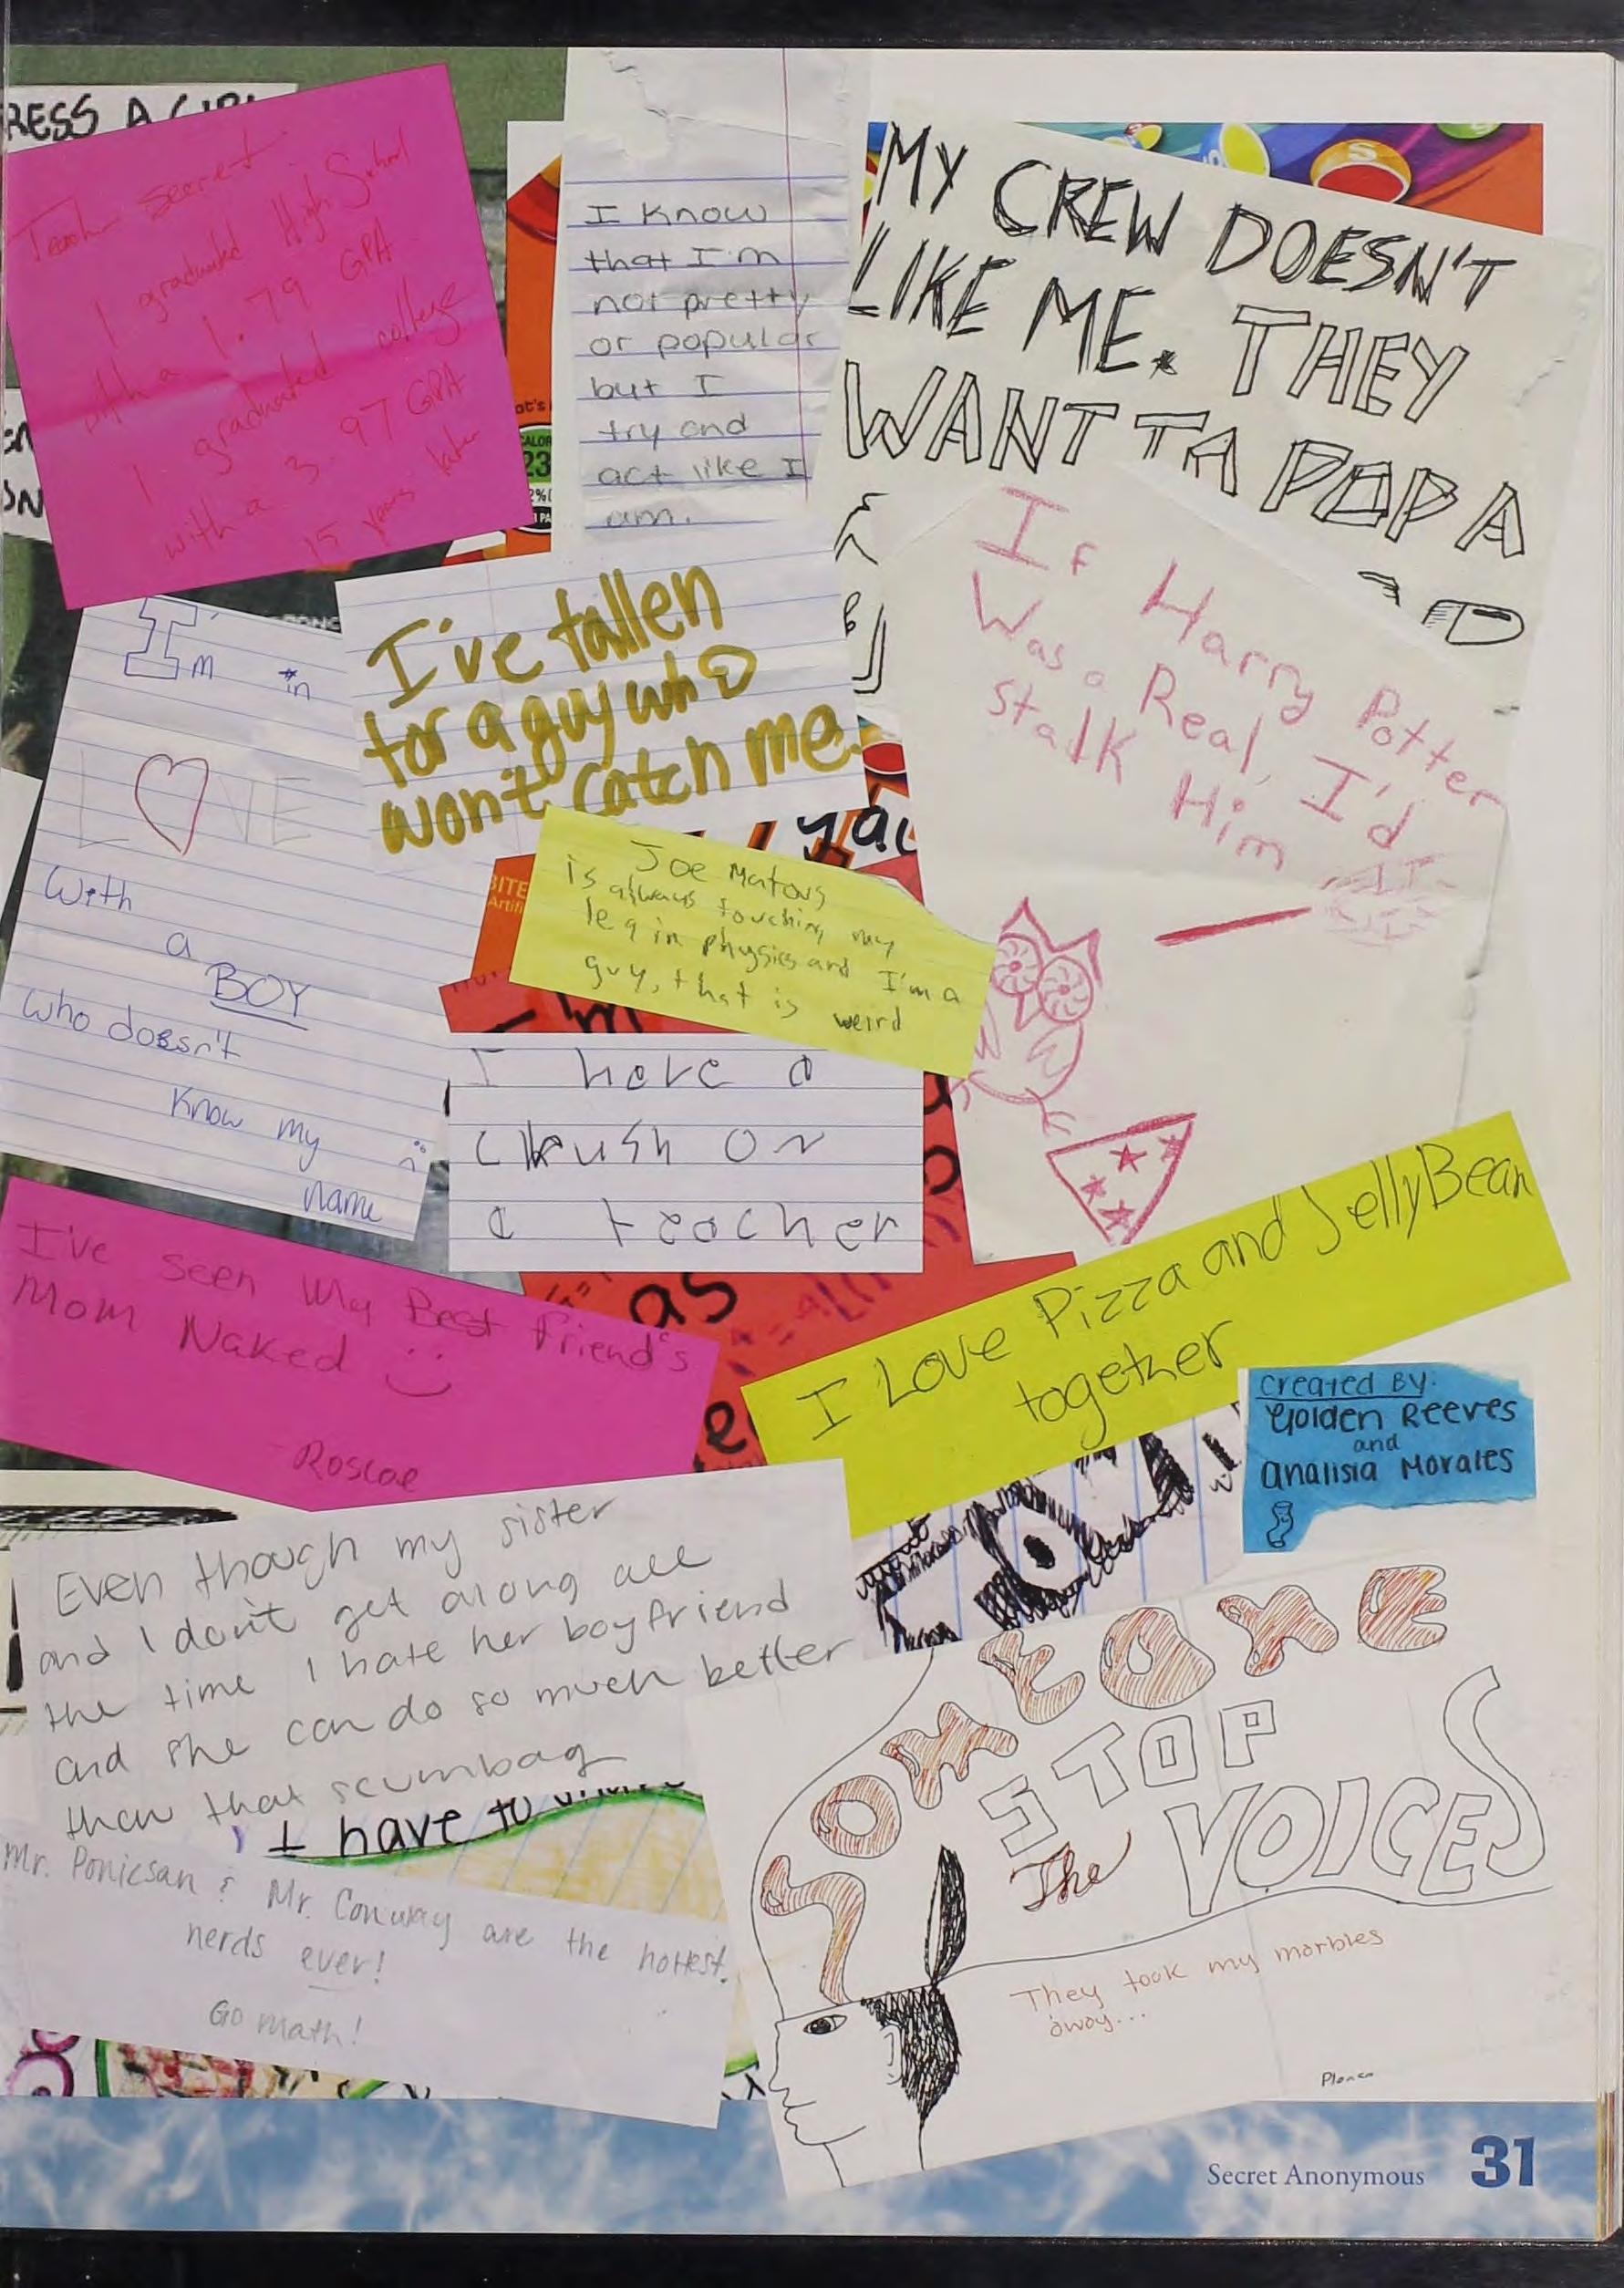 RESS A GIRL
Teach secret
I graduated High School
with a 1.79 GPA
I graduated college
with a 3.97 GPA
15 years later
I know
that I'm
not pretty
or popular
but I
try and
act like I
am.
MY CREW DOESN'T
LIKE ME. THEY
WANT TA POP A
If Harry Potter
Was a Real, I'd
stalk Him
I'm in
LOVE
With
a
BOY
who doesn't
know my
name
I've fallen
for a guy who
won't catch me.
yal
Joe Matous
is always touching my
leg in physics and I'm a
guy, that is weird
I'm
I have a
crush on
a teacher
as
I've seen My Best friend's
Mom Naked
Roscoe
I Love Pizza and JellyBean
together
Created By:
Golden Reeves
and
Analisia Morales
Even though my sister
and I don't get along all
the time I hate her boyfriend
and she can do so much better
then that scumbag
I have to
Mr. Ponicsan & Mr. Conway are the hottest
nerds ever!
Go math!
SOMEONE
STOP
The
VOICES
They took my marbles
away...
Secret Anonymous 31